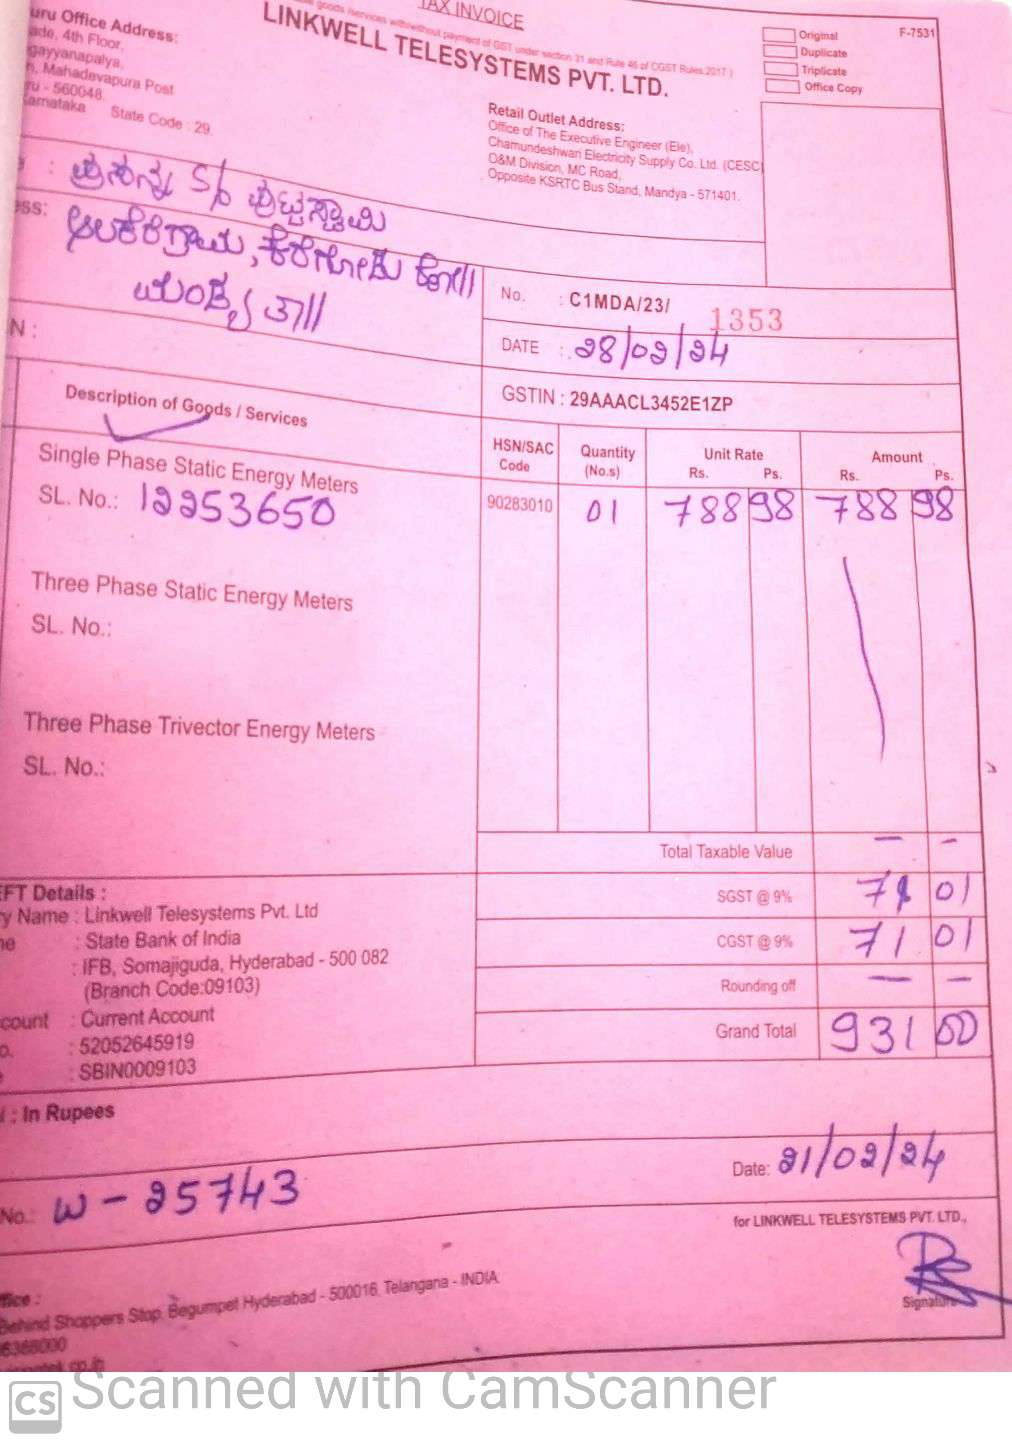 TAX INVOICE
goods /services with/without payment of GST under section 31 and Rule 46 of CGST Rules 2017 )
LINKWELL TELESYSTEMS PVT. LTD.
Original
Duplicate
Triplicate
Office Copy
F-7531
uru Office Address:
ade, 4th Floor,
gayyanapalya,
n, Mahadevapura Post
ru - 560048.
arnataka State Code : 29.
Retail Outlet Address:
Office of The Executive Engineer (Ele),
Chamundeshwari Electricity Supply Co. Ltd. (CESC)
O&M Division, MC Road,
Opposite KSRTC Bus Stand, Mandya - 571401.
: ಪ್ರಸನ್ನ S/o ಪುಟ್ಟಸ್ವಾಮಿ
ess: ಆಲಕೆರೆಗ್ರಾಮ, ಕೆರೆಗೋಡು ಹೋ||
ಮಂಡ್ಯ ತಾ||
N :
No. : C1MDA/23/ 1353
DATE : 28/02/24
GSTIN : 29AAACL3452E1ZP
Description of Goods / Services
HSN/SAC Code
Quantity (No.s)
Unit Rate Rs. Ps.
Amount Rs. Ps.
Single Phase Static Energy Meters
SL. No.: 12253650 90283010 01 788 98 788 98
Three Phase Static Energy Meters
SL. No.:
Three Phase Trivector Energy Meters
SL. No.:
Total Taxable Value — -
SGST @ 9% 71 01
CGST @ 9% 71 01
Rounding off — -
Grand Total 931 00
EFT Details :
ry Name : Linkwell Telesystems Pvt. Ltd
me : State Bank of India
: IFB, Somajiguda, Hyderabad - 500 082
(Branch Code:09103)
count : Current Account
o. : 52052645919
: SBIN0009103
: In Rupees
No.: W - 25743
Date: 21/02/24
for LINKWELL TELESYSTEMS PVT. LTD.,
Signature
ffice :
Behind Shoppers Stop, Begumpet Hyderabad - 500016, Telangana - INDIA.
6368000
CS Scanned with CamScanner